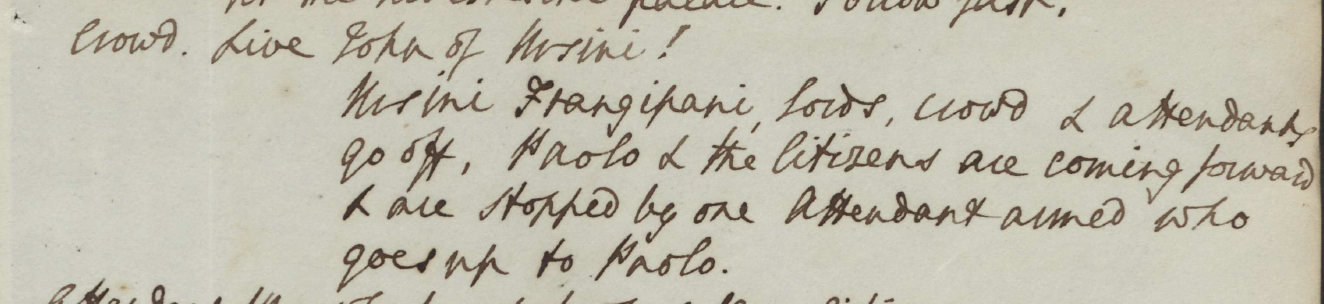 palace. Follow fast,
Crowd. Live John of Ursini!
Ursini Frangipani, lords, crowd & attendants
go off, Paolo & the Citizens are coming forward
& are stopped by one Attendant armed who
goes up to Paolo.